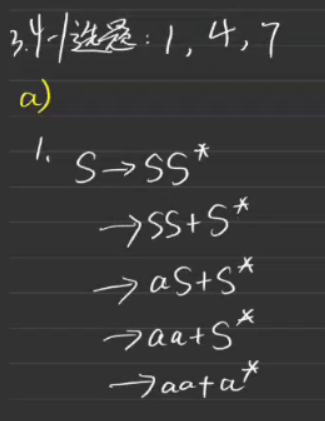 3.4-1选题：1, 4, 7
a)
1. S→SS*
→SS+S*
→aS+S*
→aa+S*
→aa+a*